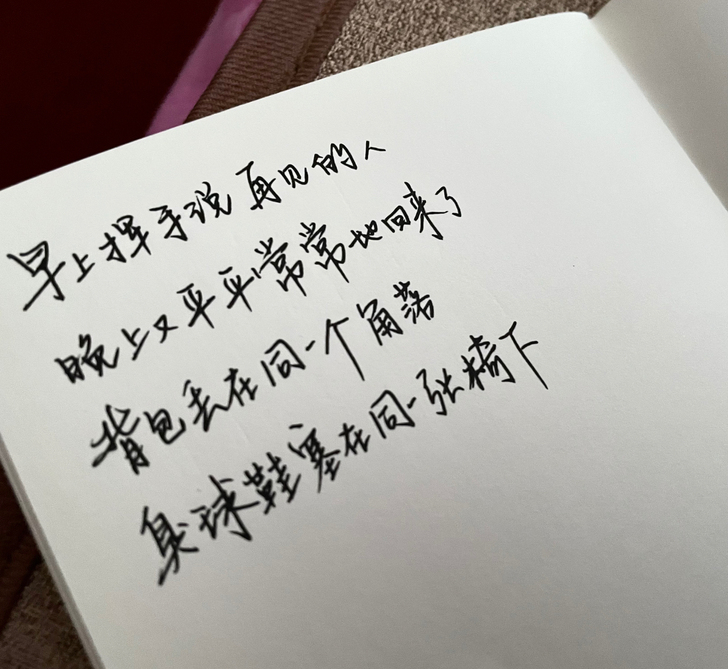 早上挥手说再见的人
晚上又平平常常地回来了
背包丢在同一个角落
臭球鞋塞在同一张椅下